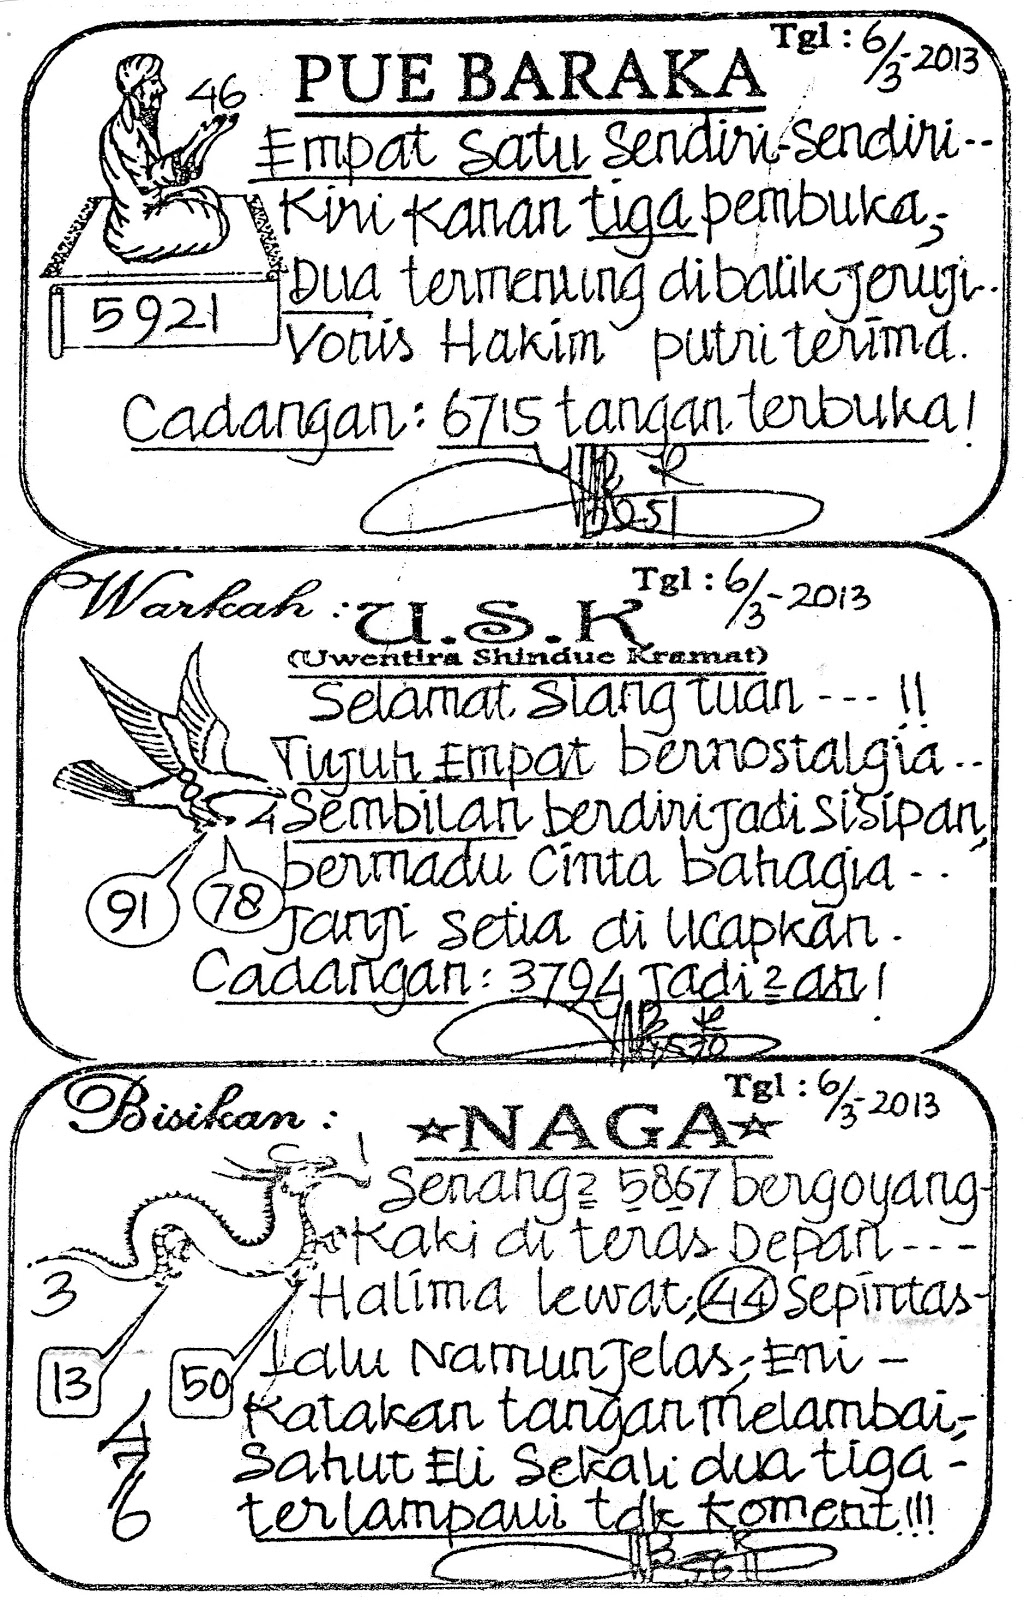 Tgl : 6/3-2013
PUE BARAKA
46
Empat satu sendiri-sendiri--
Kiri kanan tiga pembuka,-
Dua termenung dibalik jeruji..
5921
Vonis Hakim putri terima.
Cadangan : 6715 tangan terbuka!
Warkah :
Tgl : 6/3-2013
U.S.K
(Uwentira Shindue Kramat)
Selamat siang tuan --- !!
Tujuh Empat bernostalgia..
4 Sembilan berdiri jadi sisipan,
bermadu cinta bahagia ..
91
78
Janji setia di ucapkan.
Cadangan : 3794 jadi 2 an!
Bisikan :
Tgl : 6/3-2013
NAGA
Senang2 5867 bergoyang-
Kaki di teras Depan ---
3
Halima lewat, 44 sepintas-
Lalu Namun jelas, Eni -
13
50
Katakan tangan melambai,-
4
Sahut Eli Sekali dua tiga -
7
terlampaui tdk koment!!!
6